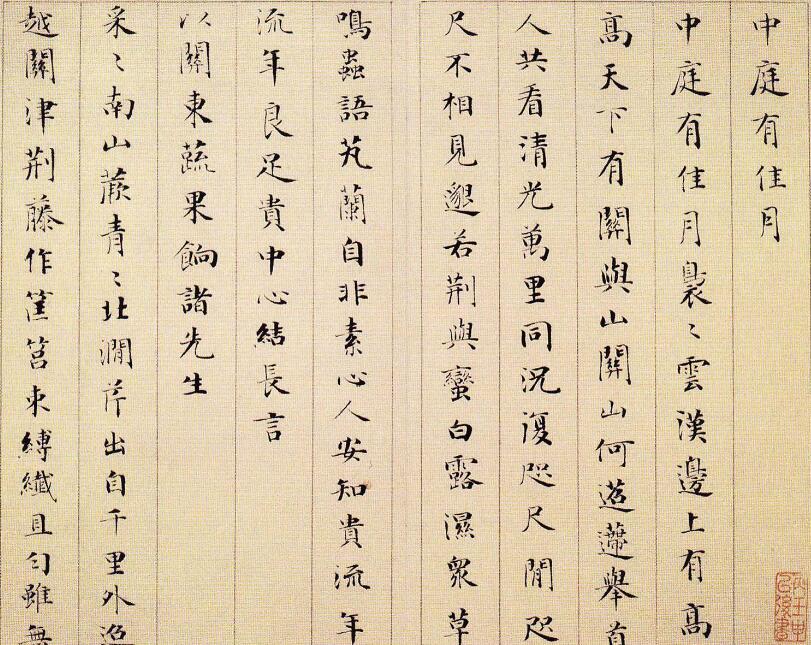 中庭有佳月
中庭有佳月裊〻雲漢邊上有高
高天下有關與山關山何迢遰舉首
人共看清光萬里同況復咫尺間咫
尺不相見邈若荊與蠻白露濕衆草
鳴蟲語芄蘭自非素心人安知貴流年
流年良足貴中心結長言
以關東蔬果餉諸先生
采〻南山蕨青〻北澗芹出自千里外迢
越關津荊藤作筐筥束縛纖且勻雖無